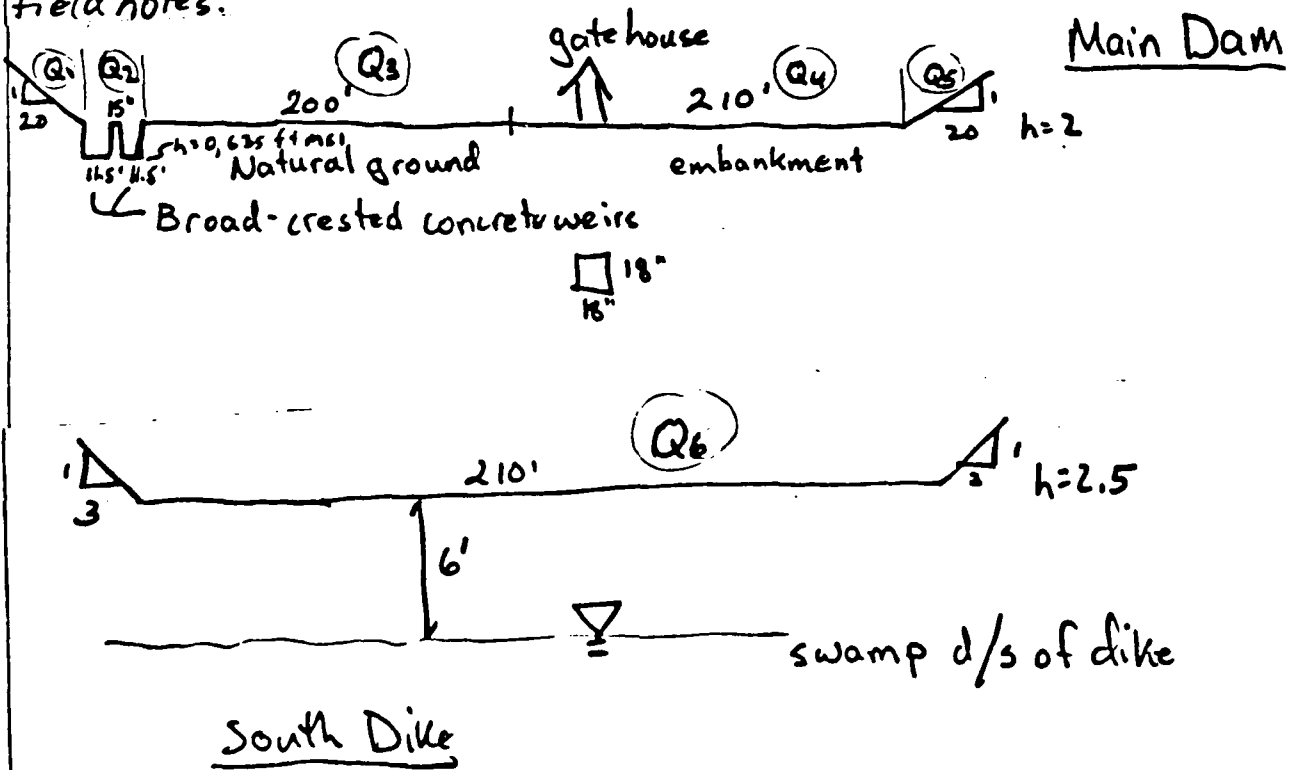 field notes.
Main Dam
gatehouse
Q1 Q2 Q3 Q4 Q5
1
20
15"
200'
210'
1
20
h=2
h=0, 635 ft msl
11.5' 11.5'
Natural ground
embankment
Broad-crested concrete weirs
18"
18"
Q6
1
3
210'
1
3
h=2.5
6'
swamp d/s of dike
South Dike